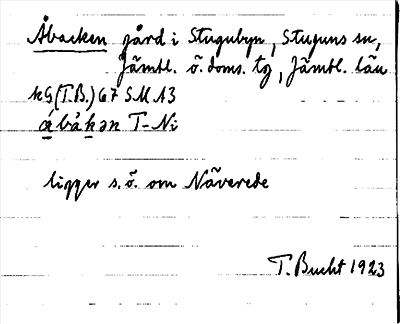 Åbacken gård i Stugubyn, Stuguns sn,
Jämtl. ö. doms. tg, Jämtl. län
kG (T.B.) 67 SM A3
ǻbákən T-Ni
ligger s.ö. om Näverede
T. Bucht 1923